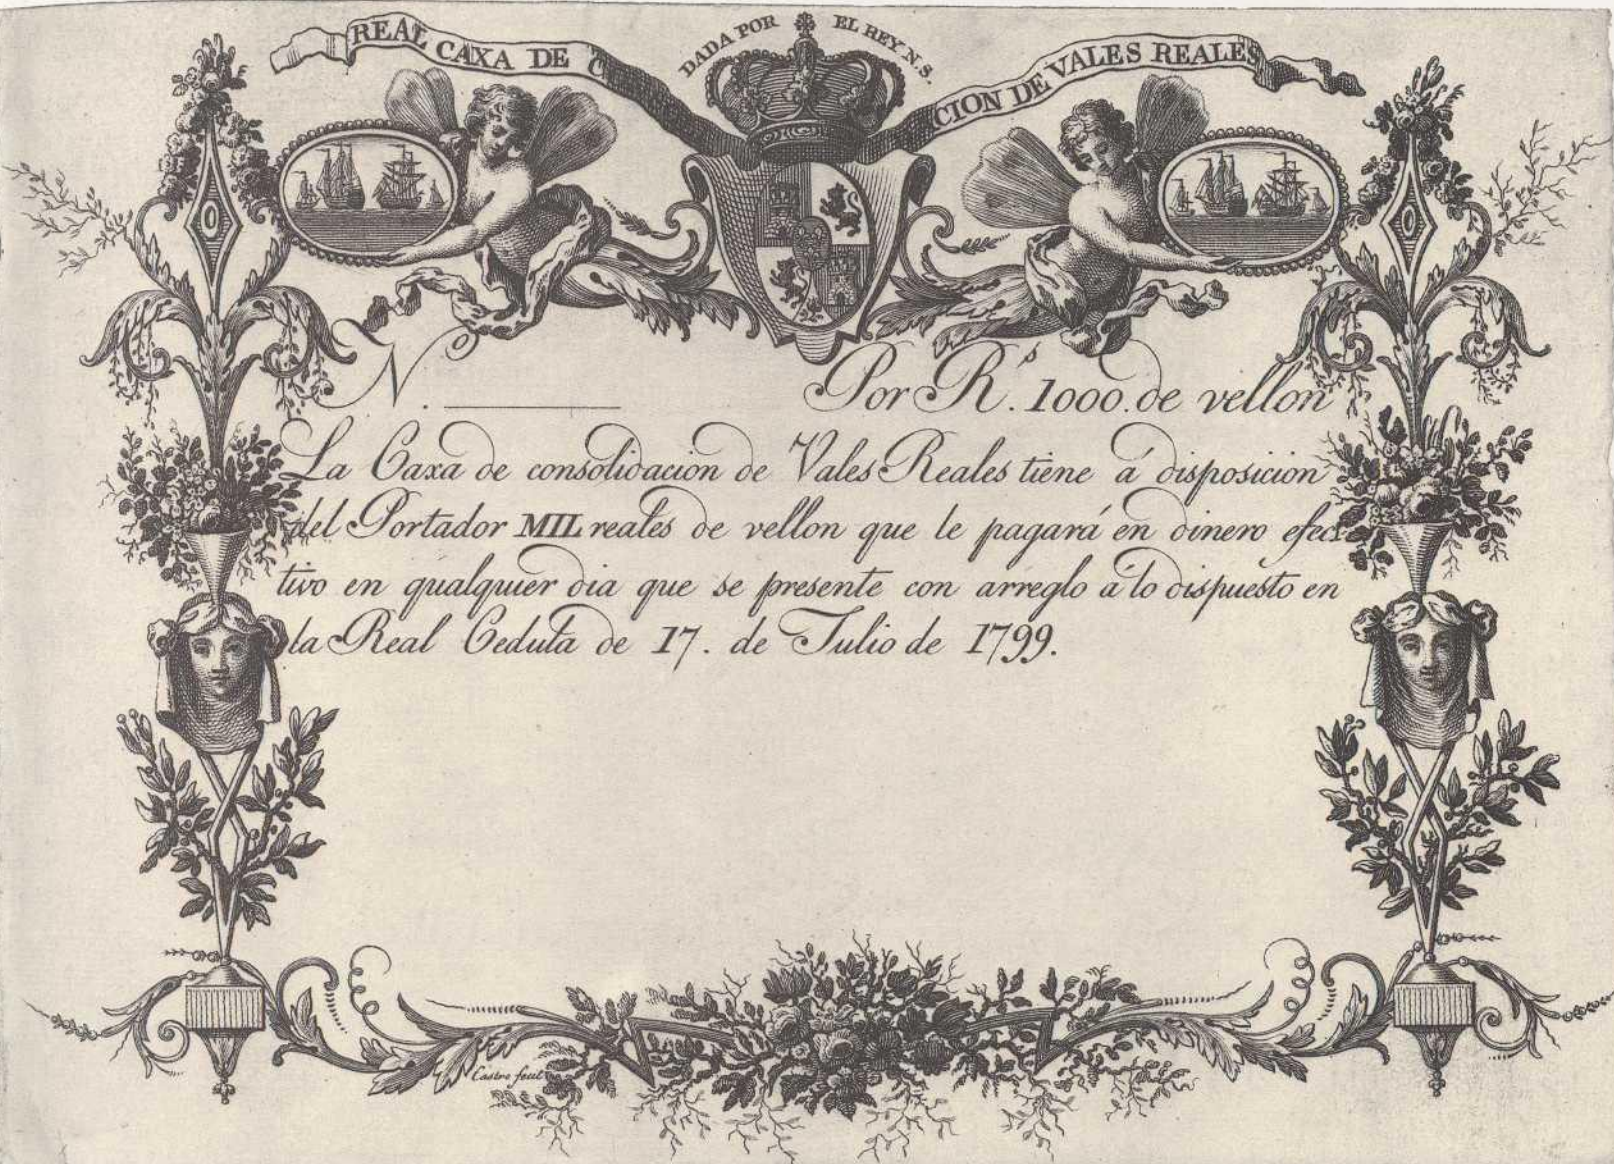 REAL CAXA DE C
DADA POR EL REY N.S.
CION DE VALES REALES
Nº. Por R.ˢ 1000. de vellon
La Caxa de consolidacion de Vales Reales tiene á disposicion
del Portador MIL reales de vellon que le pagará en dinero efec
tivo en qualquier dia que se presente con arreglo á lo dispuesto en
la Real Cedula de 17. de Julio de 1799.
Castro fecit